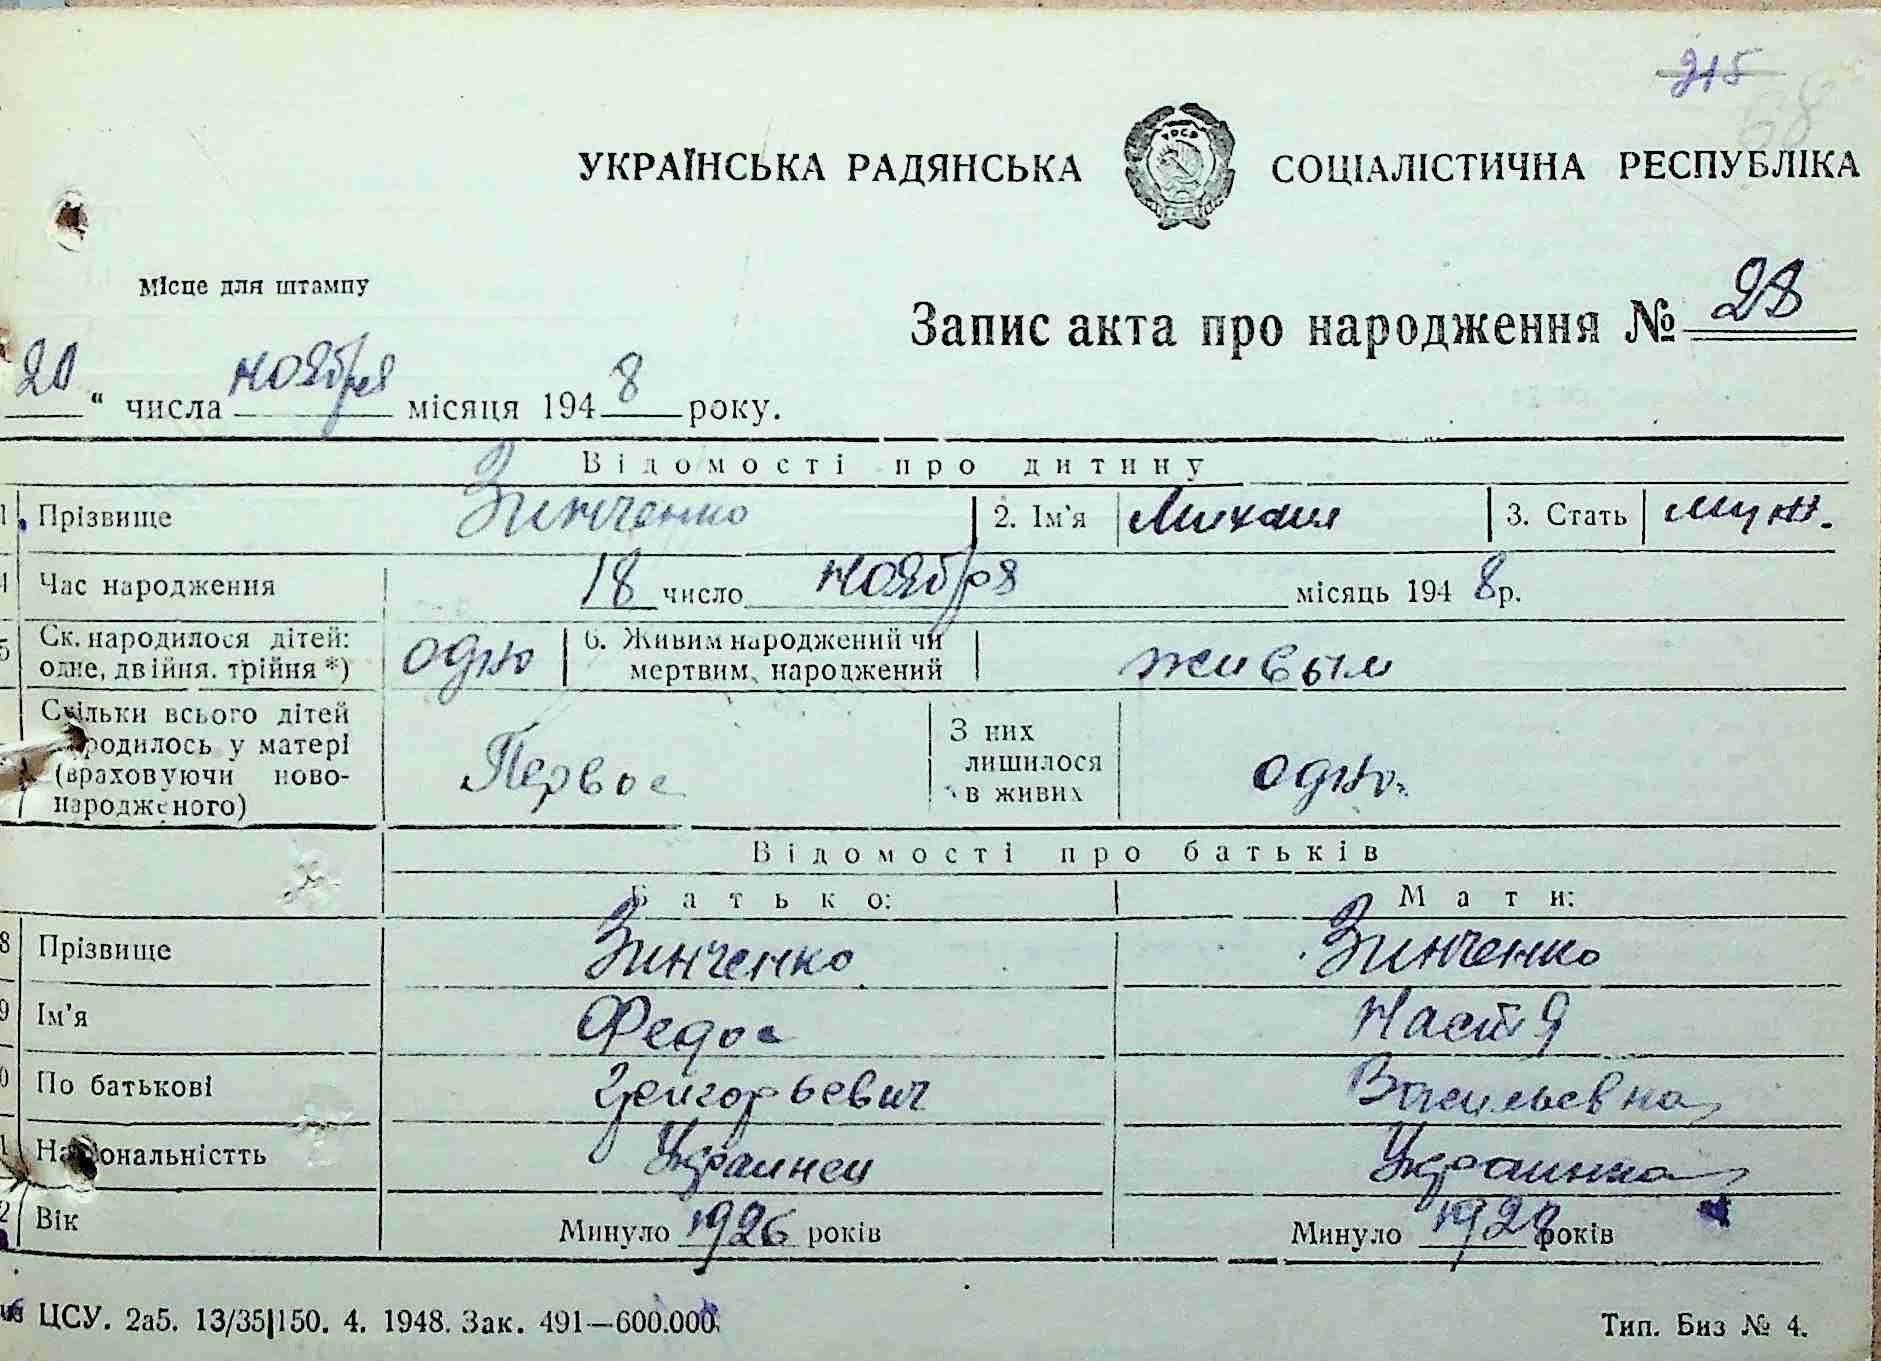 215
68
УКРАЇНСЬКА РАДЯНСЬКА СОЦІАЛІСТИЧНА РЕСПУБЛІКА
УРСР
Місце для штампу
Запис акта про народження № 28
20 “ числа ноября місяця 1948 року.
Відомості про дитину
1. Прізвище Зинченко 2. Ім'я Михаил 3. Стать муж.
4 Час народження 18 число ноября місяць 1948 р.
5 Ск. народилося дітей: одне, двійня. трійня *) одно 6. Живим народжений чи мертвим народжений живым
Скільки всього дітей народилось у матері (враховуючи новонародженого) Первое З них лишилося в живих одно.
Відомості про батьків
Батько: Мати:
8 Прізвище Зинченко Зинченко
9 Ім'я Федос Настя
0 По батькові Григорьевич Васильевна
1 Національністть Украинец Украинка
2 Вік Минуло 1926 років Минуло 1928 років
ЦСУ. 2а5. 13/35|150. 4. 1948. Зак. 491—600.000. Тип. Биз № 4.